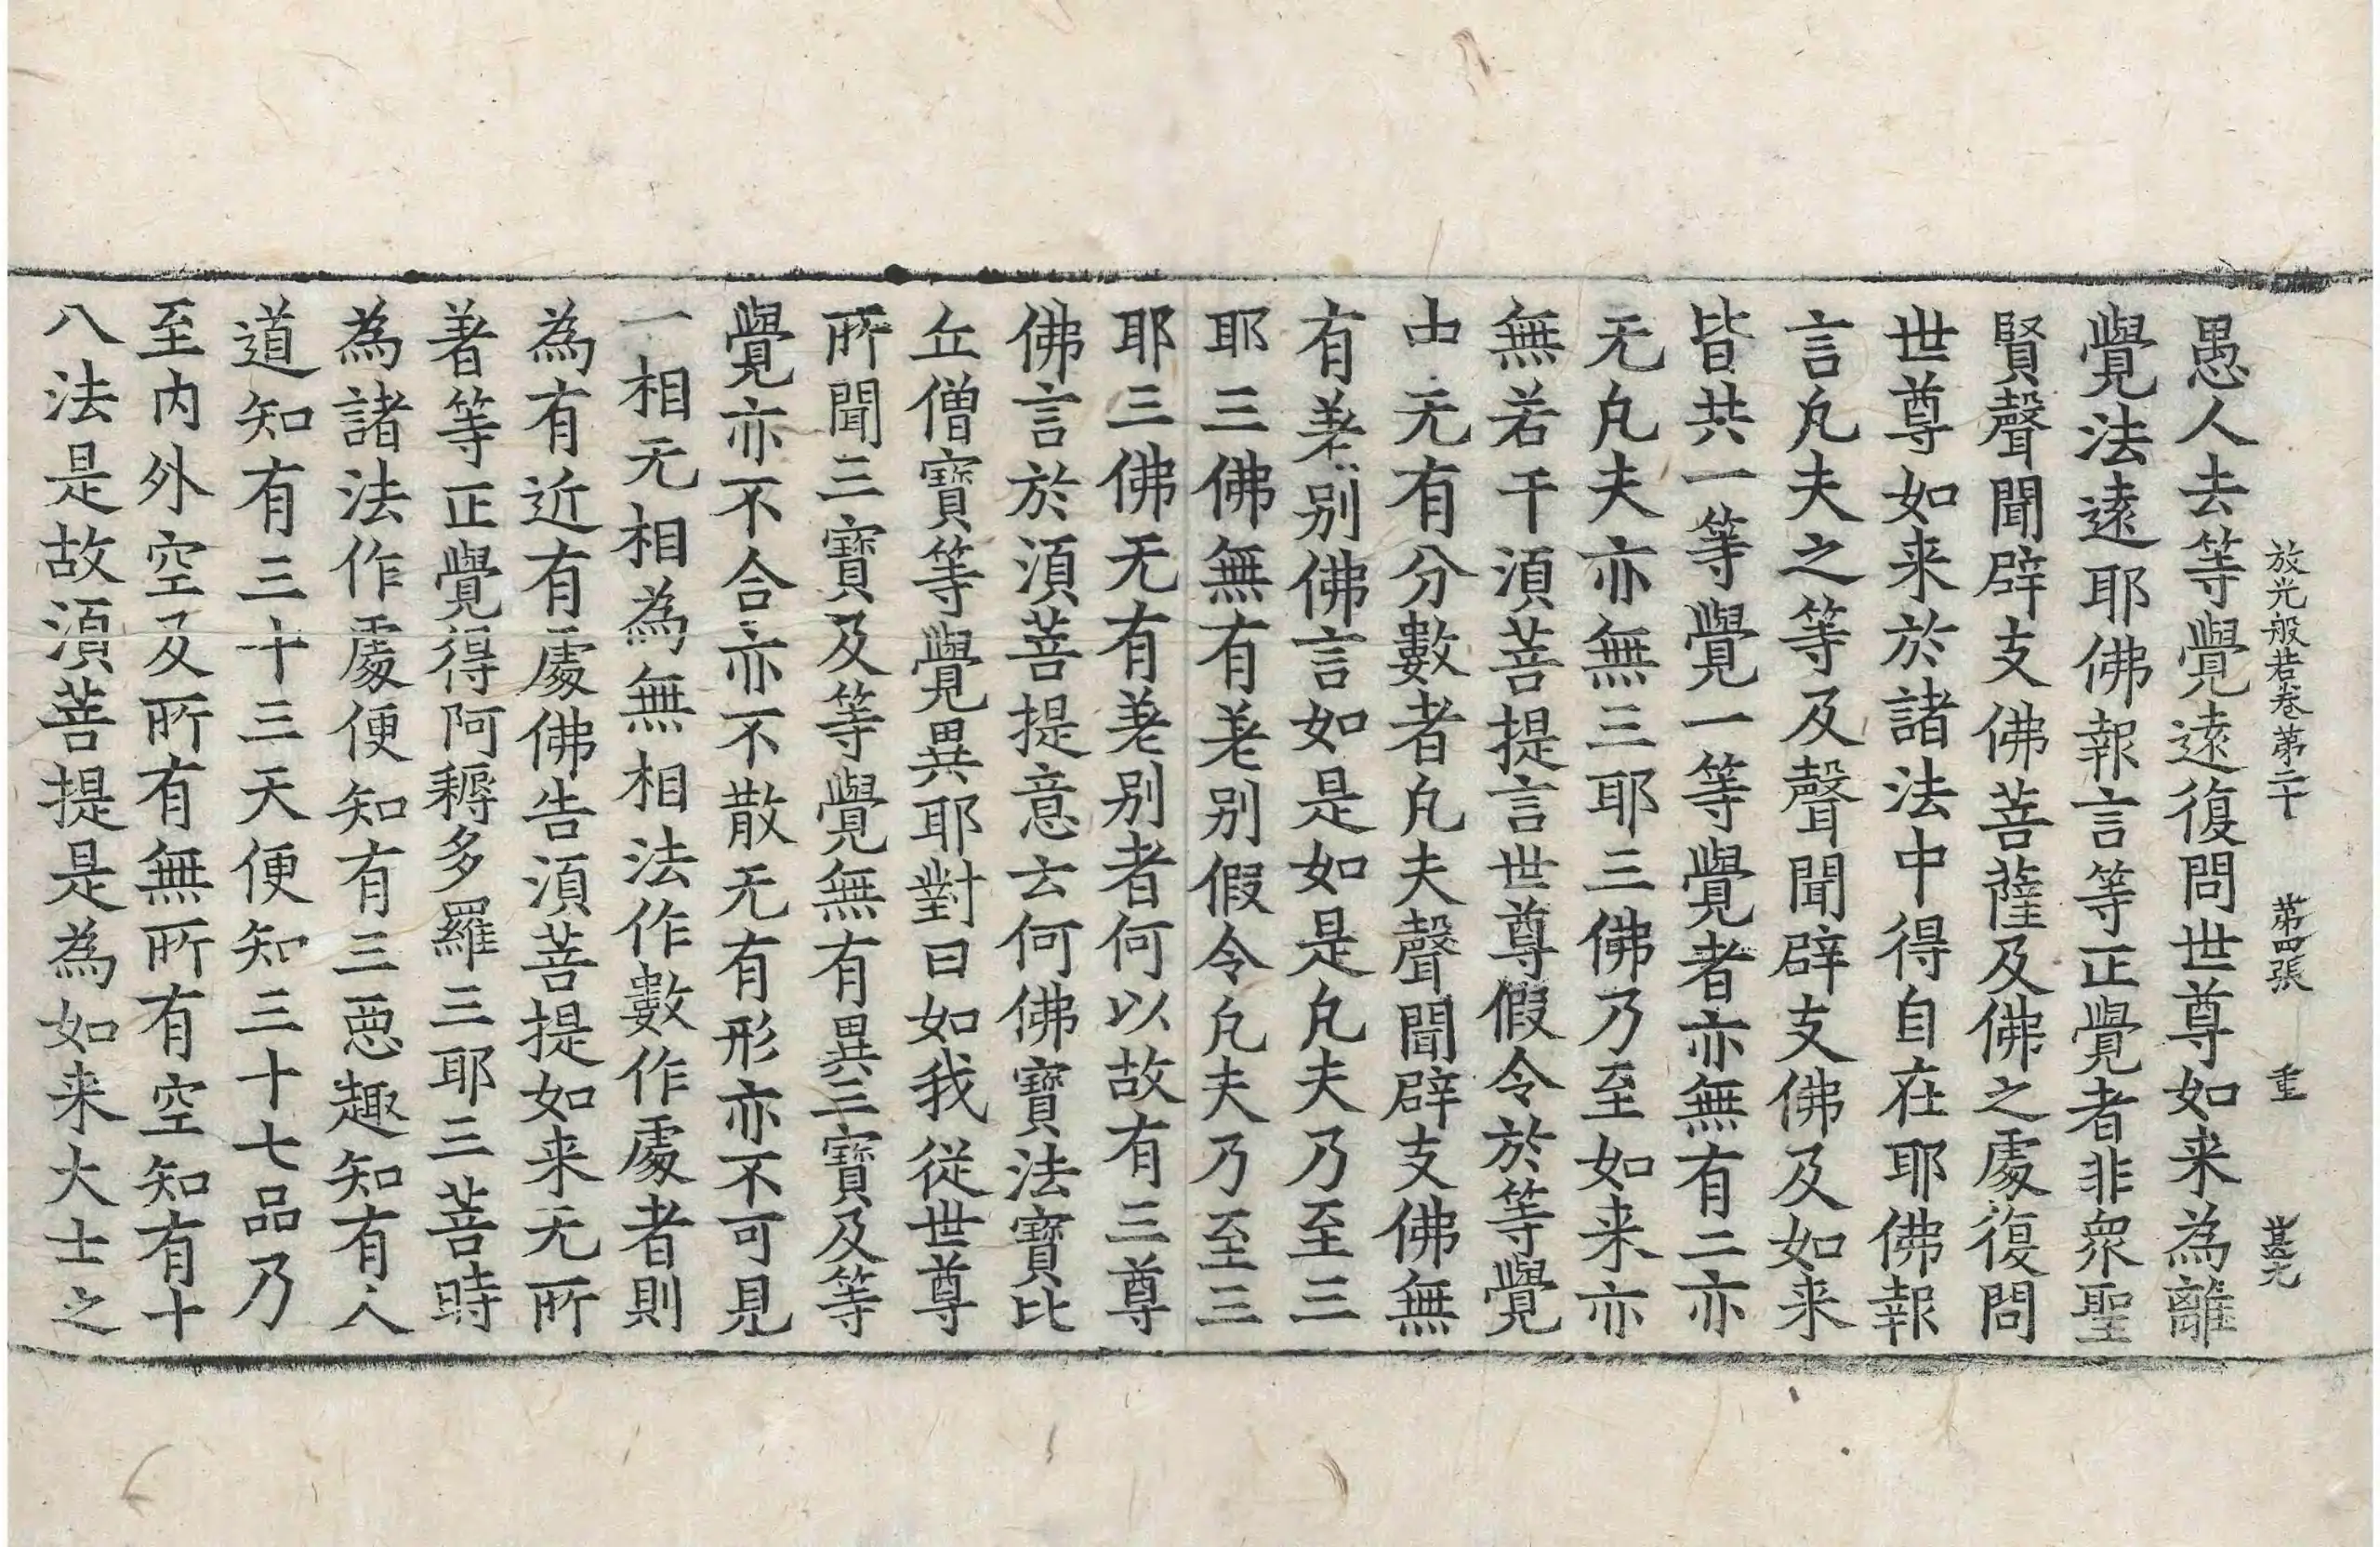 放光般若卷第二十 第四張 重
愚人去等覺遠復問世尊如来為離
覺法遠耶佛報言等正覺者非衆聖
賢聲聞辟支佛菩薩及佛之處復問
世尊如来於諸法中得自在耶佛報
言凡夫之等及聲聞辟支佛及如来
皆共一等覺一等覺者亦無有二亦
无凡夫亦無三耶三佛乃至如来亦
無若干須菩提言世尊假令於等覺
中无有分數者凡夫聲聞辟支佛無
有差别佛言如是如是凡夫乃至三
耶三佛無有差别假令凡夫乃至三
耶三佛无有差别者何以故有三尊
佛言於須菩提意云何佛寶法寶比
丘僧寶等覺異耶對曰如我從世尊
所聞三寶及等覺無有異三寶及等
覺亦不合亦不散无有形亦不可見
一相无相為無相法作數作處者則
為有近有處佛告須菩提如来无所
著等正覺得阿耨多羅三耶三菩時
為諸法作處便知有三惡趣知有人
道知有三十三天便知三十七品乃
至内外空及所有無所有空知有十
八法是故須菩提是為如来大士之